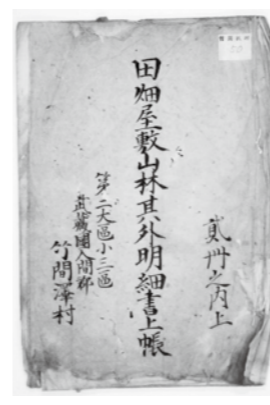 貳冊之内上
田畑屋敷山林其外明細書上帳
第二大區小三區
武蔵國入間郡
竹間澤村